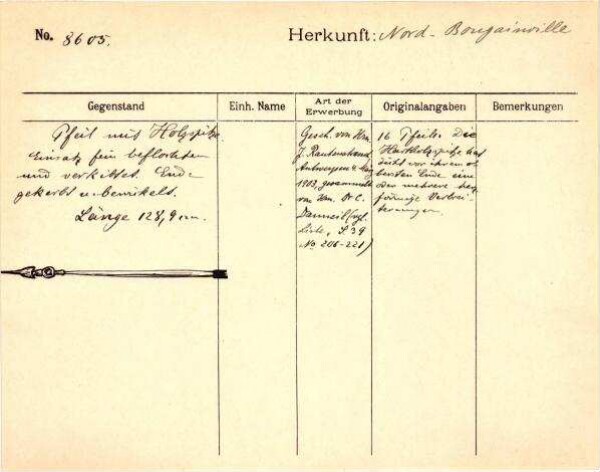 No. 8605.
Herkunft: Nord-Bougainville
Gegenstand
Einh. Name
Art der Erwerbung
Originalangaben
Bemerkungen
Pfeil mit Holzspitze
Einsatz fein beflochten
und verkittet. Ende
gekerbt u. bewickelt.
Länge 128,9 cm.
Gesch. von Hrn.
J. Rautenstrauch
Antwerpen
1903, gesammelt
von Hrn. Dr C.
Danneil (vgl.
Liste, S. 39
No 206-221)
16 Pfeile. Die
Hartholzspitze hat
dicht vor ihrem
Ende eine
oder mehrere
förmige Verbrei-
terungen.